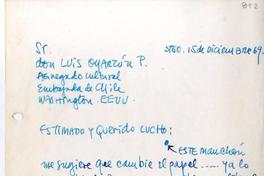 812
STGO. 15 de Diciembre 69.
Sr.
don LUIS OYARZÚN P.
Agregado Cultural
Embajada de Chile
Washington. EEUU.
ESTIMADO y Querido LUCHO:
ESTE Manchón
me sugiere que cambie el papel ..... ya lo